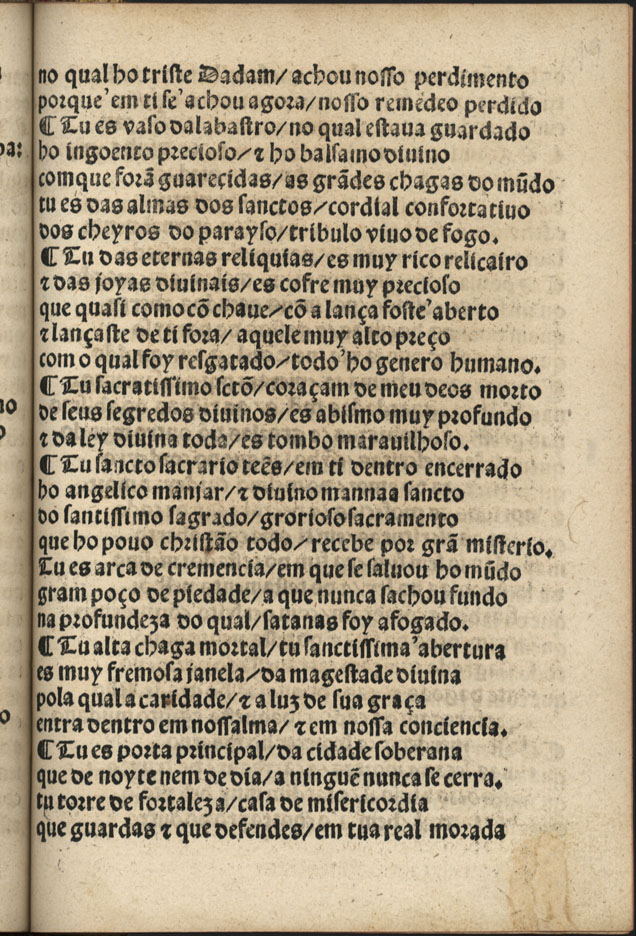 no qual ho triste Dadam/ achou nosso perdimento
porque' em ti se' achou agora/ nosso remedeo perdido
¶ Tu es vaso dalabastro/ no qual estaua guardado
ho ingoento precioso/ ⁊ ho balsamo diuino
com que forã guarecidas/ as grãdes chagas do mũdo
tu es das almas dos sanctos/ cordial confortatiuo
dos cheyros do parayso/ tribulo viuo de fogo.
¶ Tu das eternas reliquias/ es muy rico relicairo
⁊ das joyas diuinais/ es cofre muy precioso
que quasi como cõ chaue/ cõ a lança foste' aberto
⁊ lançaste de ti fora/ aquele muy alto preço
com o qual foy resgatado/ todo' ho genero humano.
¶ Tu sacratissimo sctõ/ coraçam de meu deos morto
de seus segredos diuinos/ es abismo muy profundo
⁊ da ley diuina toda/ es tombo marauilhoso.
¶ Tu sancto sacrario teẽs/ em ti dentro encerrado
ho angelico manjar/ ⁊ diuino mannaa sancto
do santissimo sagrado/ grorioso sacramento
que ho pouo christão todo/ recebe por grã misterio.
Tu es arca de cremencia/ em que se saluou ho mũdo
gram poço de piedade/ a que nunca sachou fundo
na profundeza do qual/ satanas foy afogado.
¶ Tu alta chaga mortal/ tu sanctissima' abertura
es muy fremosa janela/ da magestade diuina
pola qual a caridade/ ⁊ a luz de sua graça
entra dentro em nossalma/ ⁊ em nossa conciencia.
¶ Tu es porta principal/ da cidade soberana
que de noyte nem de dia/ a ninguẽ nunca se cerra.
tu torre de fortaleza/ casa de misericordia
que guardas ⁊ que defendes/ em tua real morada